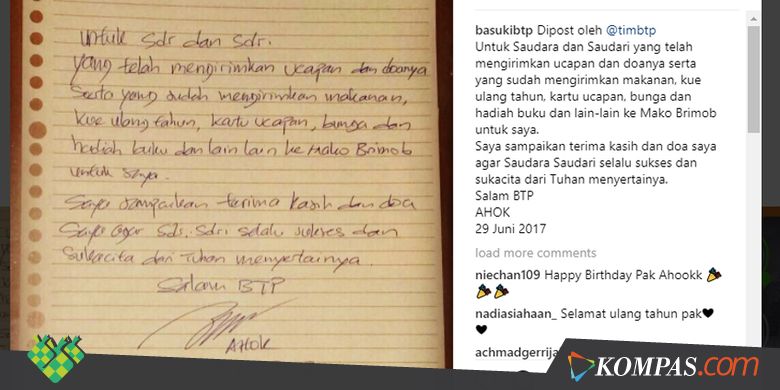 untuk sdr dan sdri.
yang telah mengirimkan ucapan dan doanya
serta yang sudah mengirimkan makanan,
kue ulang tahun, kartu ucapan, bunga dan
hadiah buku dan lain lain ke Mako Brimob
untuk saya.
Saya sampaikan terima kasih dan doa
saya agar sdr. sdri selalu sukses dan
sukacita dari Tuhan menyertainya.
Salam BTP
AHOK
basukibtp Dipost oleh @timbtp
Untuk Saudara dan Saudari yang telah
mengirimkan ucapan dan doanya serta
yang sudah mengirimkan makanan, kue
ulang tahun, kartu ucapan, bunga dan
hadiah buku dan lain-lain ke Mako Brimob
untuk saya.
Saya sampaikan terima kasih dan doa saya
agar Saudara Saudari selalu sukses dan
sukacita dari Tuhan menyertainya.
Salam BTP
AHOK
29 Juni 2017
load more comments
niechan109 Happy Birthday Pak Ahookk 🎉
🎉🎉
nadiasiahaan_ Selamat ulang tahun pak🖤
🖤
achmadgerrija
KOMPAS.com